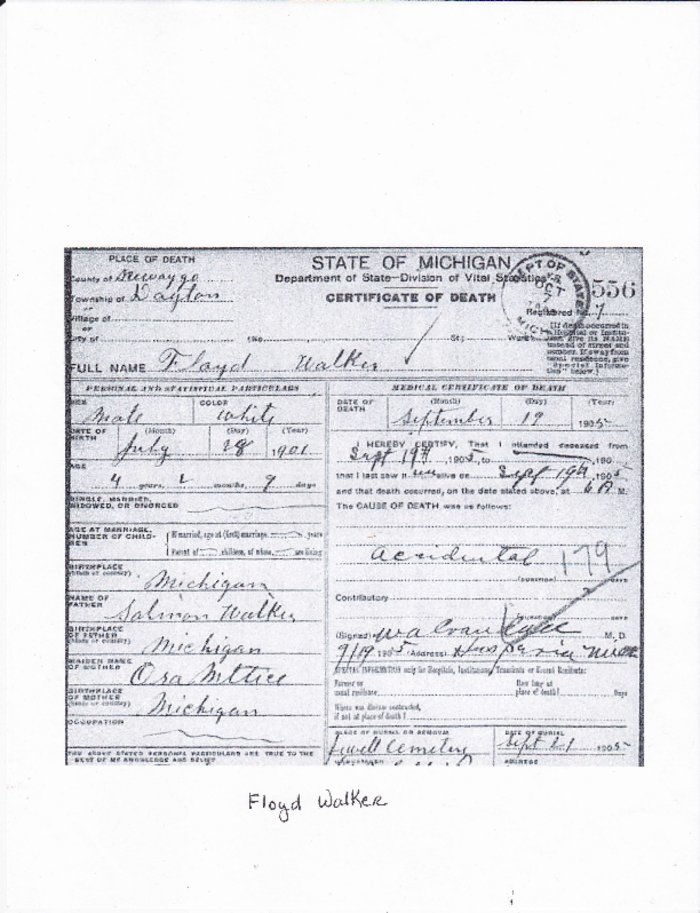 PLACE OF DEATH
County of Newaygo
Township of Dayton
Village of
or
City of
STATE OF MICHIGAN
Department of State—Division of Vital Statistics
CERTIFICATE OF DEATH
(No. St; Ward)
DEPT OF STATE
OCT
MICH
556
Registered No. 7
FULL NAME Floyd Walker
PERSONAL AND STATISTICAL PARTICULARS
SEX
Male
COLOR
White
DATE OF BIRTH
(Month) (Day) (Year)
July 28 1901
AGE
4 years, months, 9 days
SINGLE, MARRIED,
WIDOWED, OR DIVORCED
AGE AT MARRIAGE,
NUMBER OF CHILD-
REN
If married, age at (first) marriage years
Parent of children, of whom are living
BIRTHPLACE
(State or country)
Michigan
NAME OF
FATHER
Salmon Walker
BIRTHPLACE
OF FATHER
(State or country)
Michigan
MAIDEN NAME
OF MOTHER
Ora
BIRTHPLACE
OF MOTHER
(State or country)
Michigan
OCCUPATION
THE ABOVE STATED PERSONAL PARTICULARS ARE TRUE TO THE
BEST OF MY KNOWLEDGE AND BELIEF
MEDICAL CERTIFICATE OF DEATH
DATE OF
DEATH
(Month) (Day) (Year)
September 19 1905
I HEREBY CERTIFY, That I attended deceased from
Sept 19th, 1905, to , 190
that I last saw h alive on Sept 19th 1905
and that death occurred, on the date stated above, at 6 P. M.
The CAUSE OF DEATH was as follows:
accidental 179
(DURATION) DAYS
Contributory
(DURATION) DAYS
(Signed) M. D.
9/19 1905 (Address) Hesperia Mich
SPECIAL INFORMATION only for Hospitals, Institutions, Transients or Recent Residents:
Former or
usual residence
How long at
place of death? Days
Where was disease contracted,
if not at place of death?
PLACE OF BURIAL OR REMOVAL
Cemetery
DATE OF BURIAL
Sept 21 1905
UNDERTAKER
ADDRESS
Floyd Walker